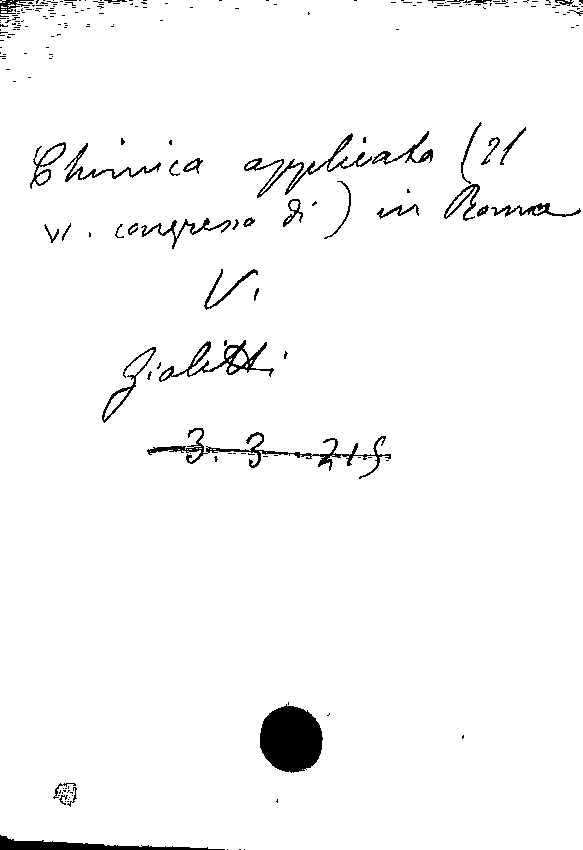 Chimica applicata (Il
VI. congresso di) in Roma
V.
Giolitti
3. 3. 215